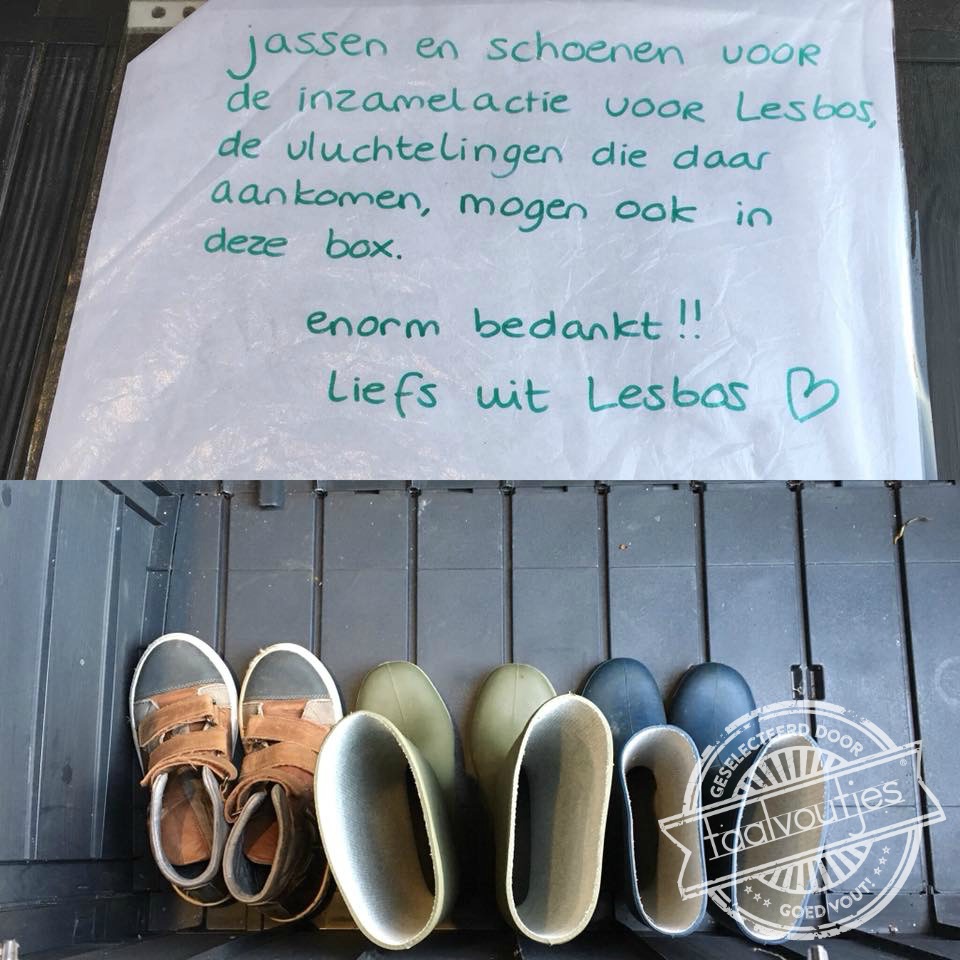 jassen en schoenen voor
de inzamelactie voor Lesbos,
de vluchtelingen die daar
aankomen, mogen ook in
deze box.
enorm bedankt!!
Liefs uit Lesbos ♡
GESELECTEERD DOOR
taalvoutjes®
GOED VOUT!